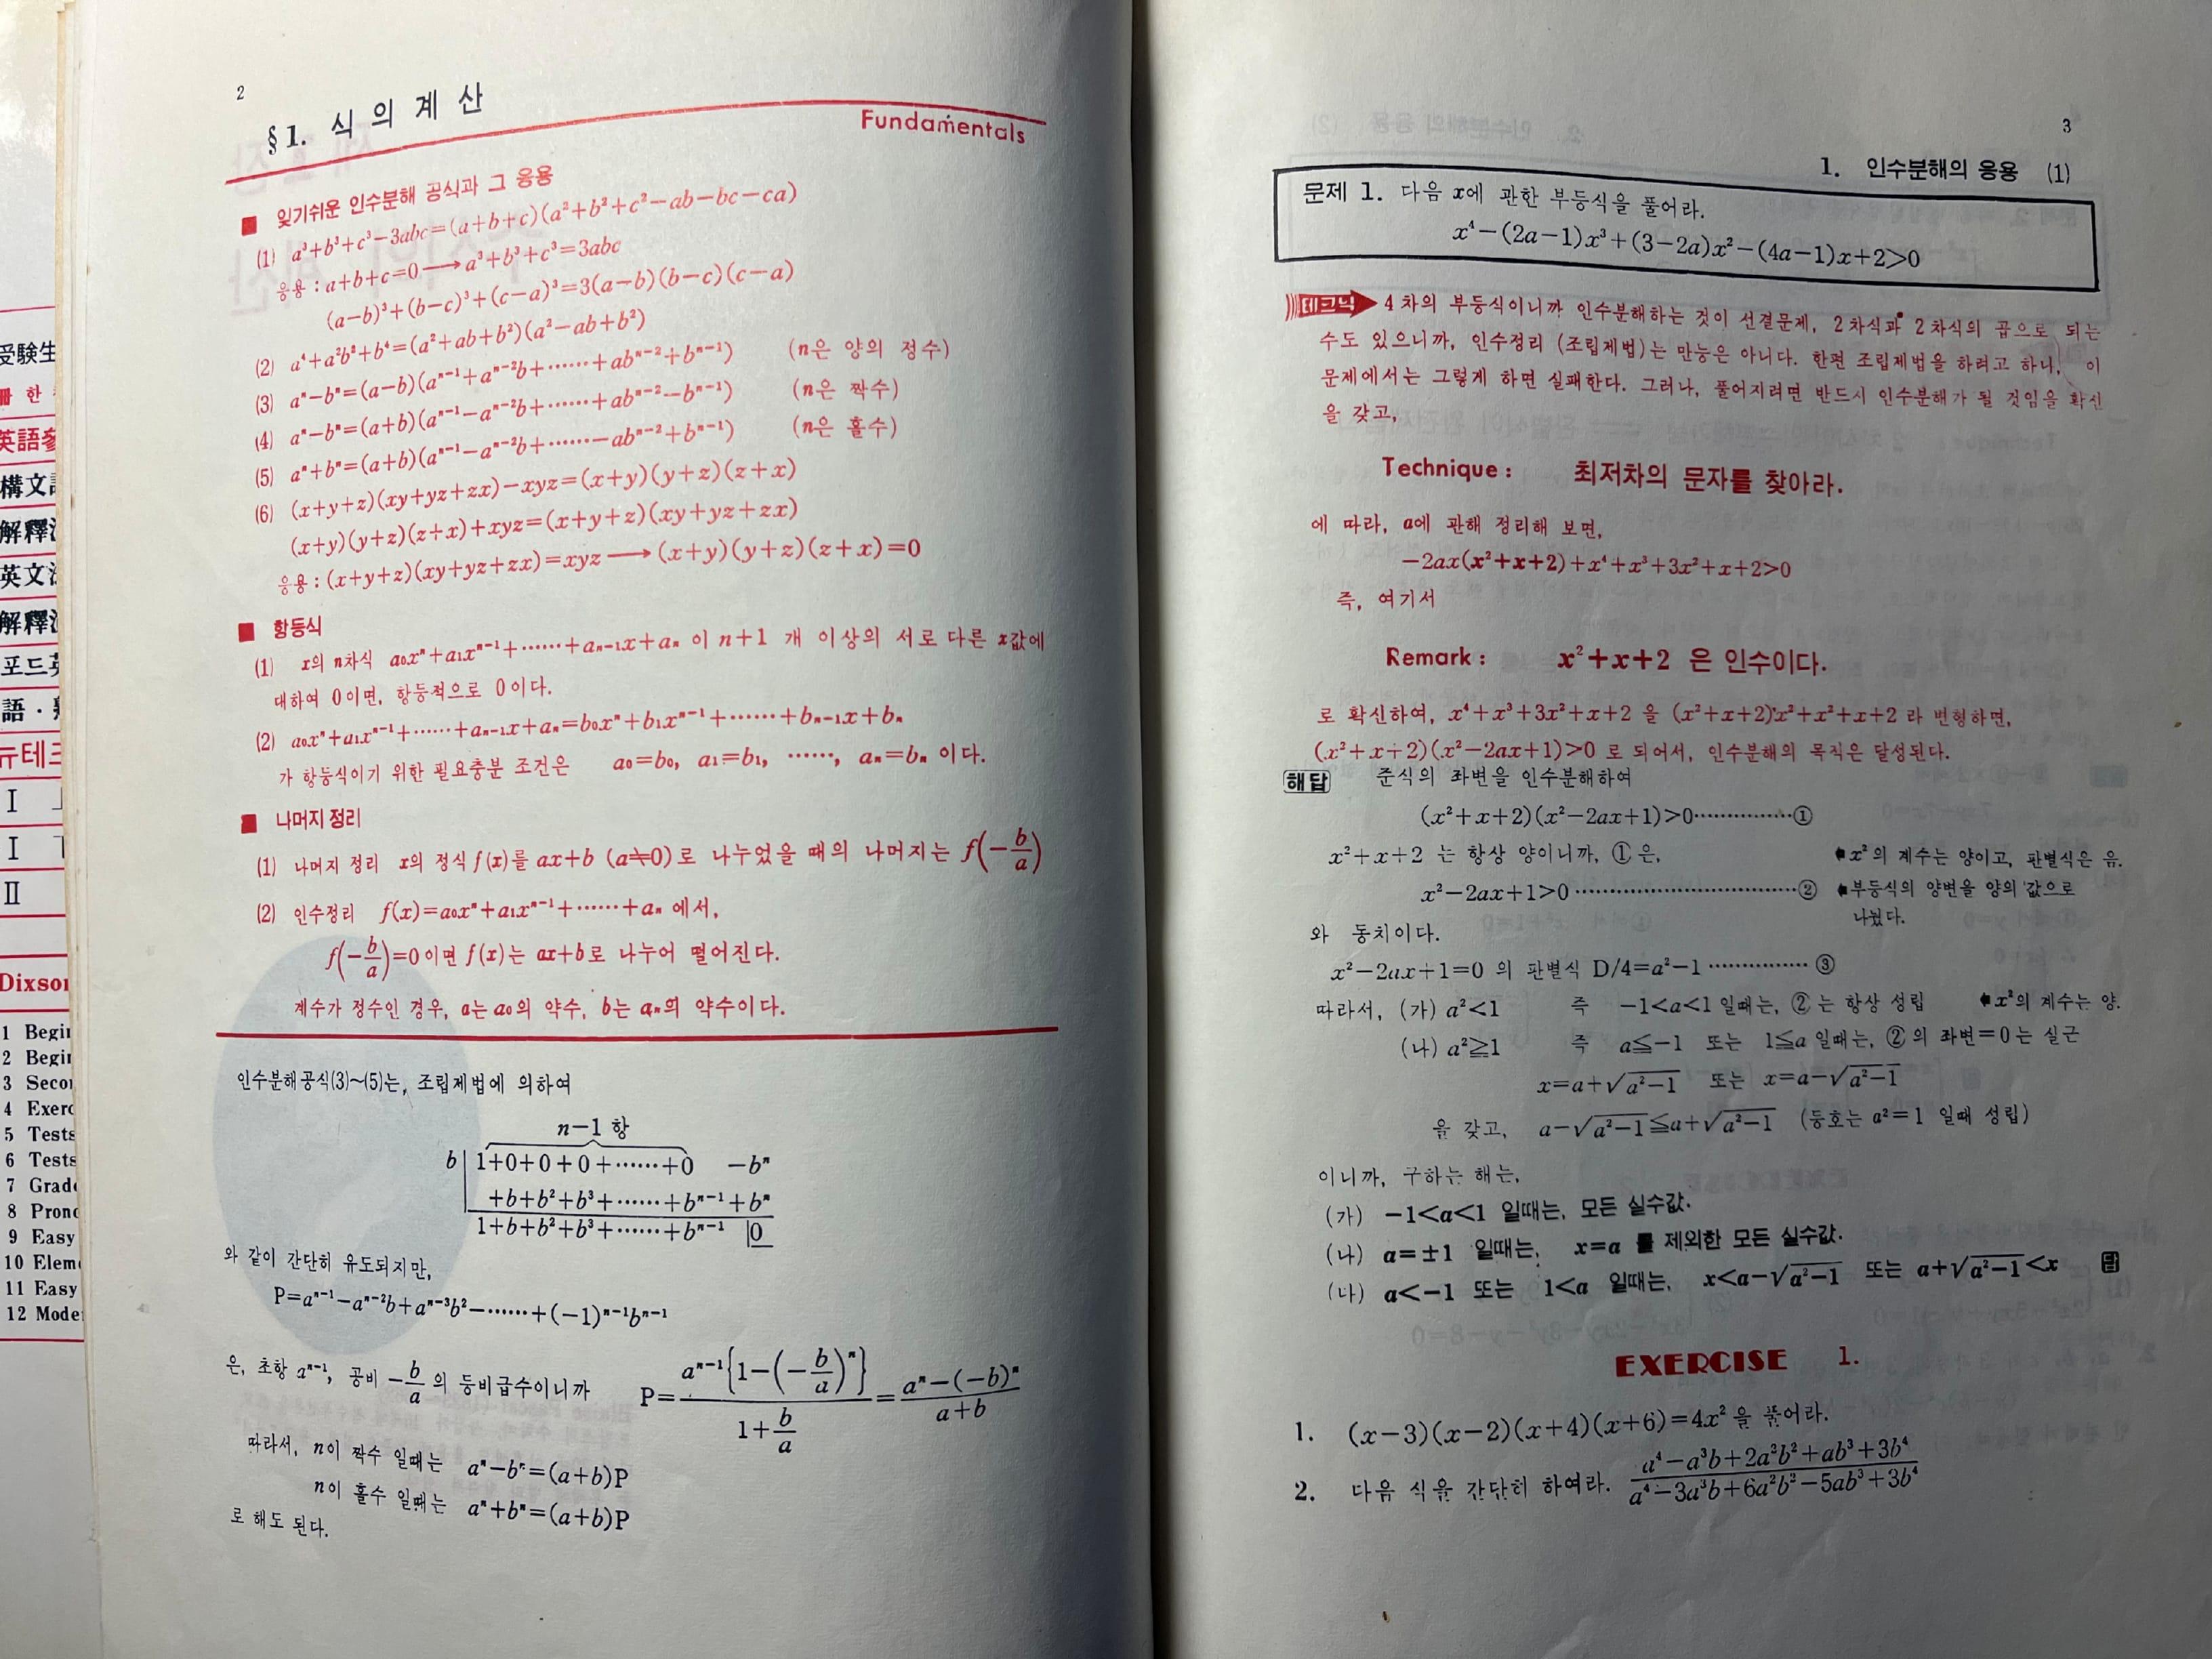 受験生
한
英語
構文
解釋
英文
解釋
포드
語·
뉴테크
I
I
II
Dixson
1 Begin
2 Begin
3 Secon
4 Exerc
5 Tests
6 Tests
7 Grade
8 Prono
9 Easy
10 Eleme
11 Easy
12 Mode
2
§1. 식의 계산
Fundamentals
■ 잊기쉬운 인수분해 공식과 그 응용
(1) a³+b³+c³−3abc=(a+b+c)(a²+b²+c²−ab−bc−ca)
응용 : a+b+c=0⟶a³+b³+c³=3abc
(a−b)³+(b−c)³+(c−a)³=3(a−b)(b−c)(c−a)
(2) a⁴+a²b²+b⁴=(a²+ab+b²)(a²−ab+b²)
(3) aⁿ−bⁿ=(a−b)(aⁿ⁻¹+aⁿ⁻²b+……+abⁿ⁻²+bⁿ⁻¹) (n은 양의 정수)
(4) aⁿ−bⁿ=(a+b)(aⁿ⁻¹−aⁿ⁻²b+……+abⁿ⁻²−bⁿ⁻¹) (n은 짝수)
(5) aⁿ+bⁿ=(a+b)(aⁿ⁻¹−aⁿ⁻²b+……−abⁿ⁻²+bⁿ⁻¹) (n은 홀수)
(6) (x+y+z)(xy+yz+zx)−xyz=(x+y)(y+z)(z+x)
(x+y)(y+z)(z+x)+xyz=(x+y+z)(xy+yz+zx)
응용 : (x+y+z)(xy+yz+zx)=xyz⟶(x+y)(y+z)(z+x)=0
■ 항등식
(1) x의 n차식 a₀xⁿ+a₁xⁿ⁻¹+……+aₙ₋₁x+aₙ 이 n+1 개 이상의 서로 다른 x값에
대하여 0이면, 항등적으로 0이다.
(2) a₀xⁿ+a₁xⁿ⁻¹+……+aₙ₋₁x+aₙ=b₀xⁿ+b₁xⁿ⁻¹+……+bₙ₋₁x+bₙ
가 항등식이기 위한 필요충분 조건은 a₀=b₀, a₁=b₁, ……, aₙ=bₙ 이다.
■ 나머지 정리
(1) 나머지 정리 x의 정식 f(x)를 ax+b (a≠0)로 나누었을 때의 나머지는 f(−b/a)
(2) 인수정리 f(x)=a₀xⁿ+a₁xⁿ⁻¹+……+aₙ 에서,
f(−b/a)=0이면 f(x)는 ax+b로 나누어 떨어진다.
계수가 정수인 경우, a는 a₀의 약수, b는 aₙ의 약수이다.
인수분해공식(3)~(5)는, 조립제법에 의하여
n−1 항
b| 1+0+0+0+……+0 −bⁿ
+b+b²+b³+……+bⁿ⁻¹+bⁿ
1+b+b²+b³+……+bⁿ⁻¹ |0
와 같이 간단히 유도되지만,
P=aⁿ⁻¹−aⁿ⁻²b+aⁿ⁻³b²−……+(−1)ⁿ⁻¹bⁿ⁻¹
은, 초항 aⁿ⁻¹, 공비 −b/a 의 등비급수이니까 P=aⁿ⁻¹{1−(−b/a)ⁿ}/(1+b/a)=(aⁿ−(−b)ⁿ)/(a+b)
따라서, n이 짝수 일때는 aⁿ−bⁿ=(a+b)P
n이 홀수 일때는 aⁿ+bⁿ=(a+b)P
로 해도 된다.
3
1. 인수분해의 응용 (1)
문제 1. 다음 x에 관한 부등식을 풀어라.
x⁴−(2a−1)x³+(3−2a)x²−(4a−1)x+2>0
테크닉 4차의 부등식이니까 인수분해하는 것이 선결문제, 2차식과 2차식의 곱으로 되는
수도 있으니까, 인수정리 (조립제법)는 만능은 아니다. 한편 조립제법을 하려고 하니, 이
문제에서는 그렇게 하면 실패한다. 그러나, 풀어지려면 반드시 인수분해가 될 것임을 확신
을 갖고,
Technique : 최저차의 문자를 찾아라.
에 따라, a에 관해 정리해 보면,
−2ax(x²+x+2)+x⁴+x³+3x²+x+2>0
즉, 여기서
Remark : x²+x+2 은 인수이다.
로 확신하여, x⁴+x³+3x²+x+2 을 (x²+x+2)x²+x²+x+2 라 변형하면,
(x²+x+2)(x²−2ax+1)>0 로 되어서, 인수분해의 목적은 달성된다.
해답 준식의 좌변을 인수분해하여
(x²+x+2)(x²−2ax+1)>0……………①
x²+x+2 는 항상 양이니까, ①은, ☚x²의 계수는 양이고, 판별식은 음.
x²−2ax+1>0………………………………② ☚부등식의 양변을 양의 값으로
나눴다.
와 동치이다.
x²−2ax+1=0 의 판별식 D/4=a²−1……………③
따라서, (가) a²<1 즉 −1<a<1 일때는, ②는 항상 성립 ☚x²의 계수는 양.
(나) a²≧1 즉 a≦−1 또는 1≦a 일때는, ②의 좌변=0는 실근
x=a+√(a²−1) 또는 x=a−√(a²−1)
을 갖고, a−√(a²−1)≦a+√(a²−1) (등호는 a²=1 일때 성립)
이니까, 구하는 해는,
(가) −1<a<1 일때는, 모든 실수값.
(나) a=±1 일때는, x=a 를 제외한 모든 실수값.
(나) a<−1 또는 1<a 일때는, x<a−√(a²−1) 또는 a+√(a²−1)<x 답
EXERCISE 1.
1. (x−3)(x−2)(x+4)(x+6)=4x²을 풀어라.
2. 다음 식을 간단히 하여라. (a⁴−a³b+2a²b²+ab³+3b⁴)/(a⁴−3a³b+6a²b²−5ab³+3b⁴)